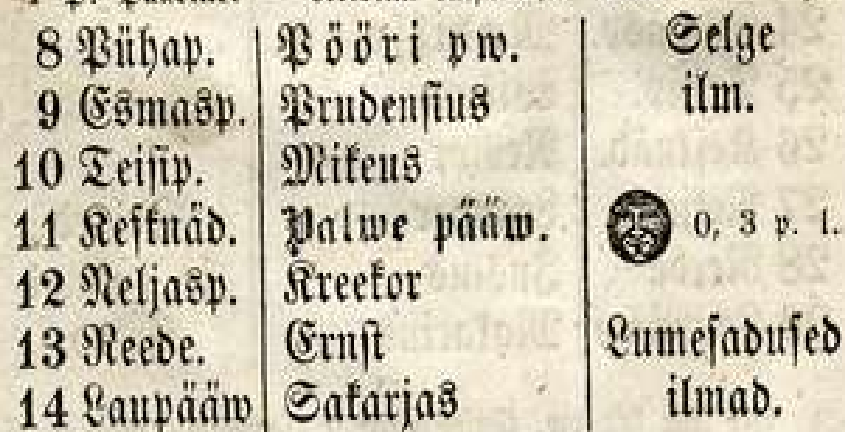 8 Pühap. Pööri pw. Selge
9 Esmasp. Prudensius ilm.
10 Teisip. Mikeus
11 Kesknäd. Palwe pääw. 0, 3 p. l.
12 Neljasp. Kreekor
13 Reede. Ernst Lumesadused
14 Laupääw Sakarjas ilmad.